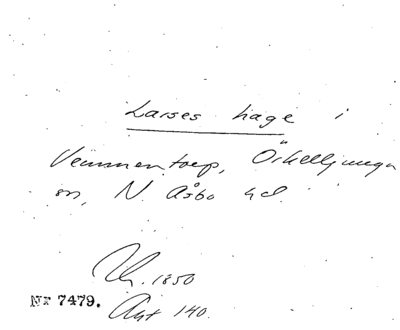 Larses hage i
Vemmentorp, Örkelljunga
sn, N. Åsbo hd.
1850
Nr 7479.
Akt 140.